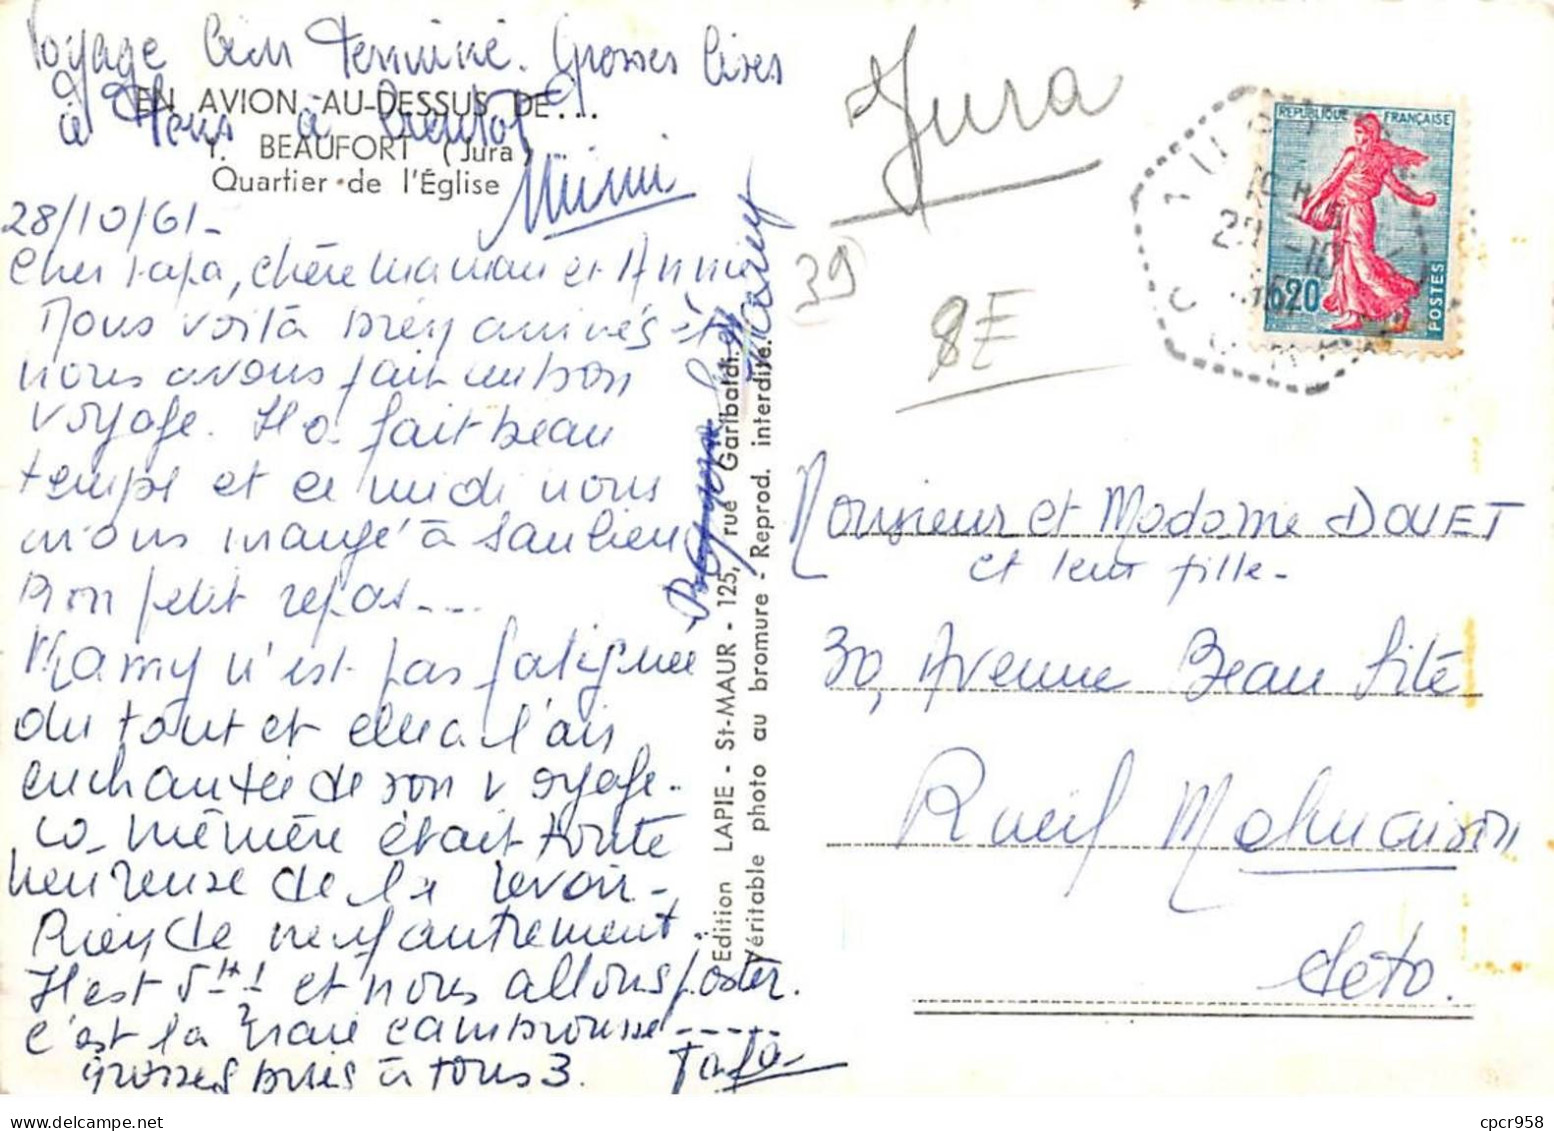 Voyage bien terminé. Grosses bises
à tous à bientôt
Mimi
EN AVION AU-DESSUS DE...
1. BEAUFORT (Jura)
Quartier de l'Église
28/10/61-
Cher Papa, chère Maman et Annie
Nous voilà bien arrivés et
nous avons fait un bon
voyage. Il a fait beau
temps et ce midi nous
avons mangé à Saulieu
Bon petit repas....
Mamy n'est pas fatiguée
du tout et elle a l'air
enchantée de son voyage.
la mémère était toute
heureuse de la revoir-
Rien de neuf autrement.
Il est 5H 1/2 et nous allons poster.
c'est la vraie cambrousse-----
grosses bises à tous 3.
Edition LAPIE - St-MAUR - 125, rue Garibaldi.
Véritable photo au bromure - Reprod. interdite.
Jura
39
8E
REPUBLIQUE FRANÇAISE
0,20
POSTES
Monsieur et Madame DOUET
et leur fille-
30, Avenue Beau Site
Rueil Malmaison
Seto.
cpcr958